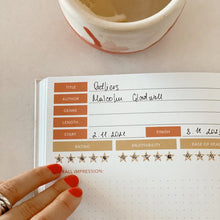 TITLE Outliers
AUTHOR Malcolm Gladwell
GENRE
LENGTH
START 2.11.2021 FINISH 8.11.202
RATING ENJOYABILITY EASE OF READ
OVERALL IMPRESSION